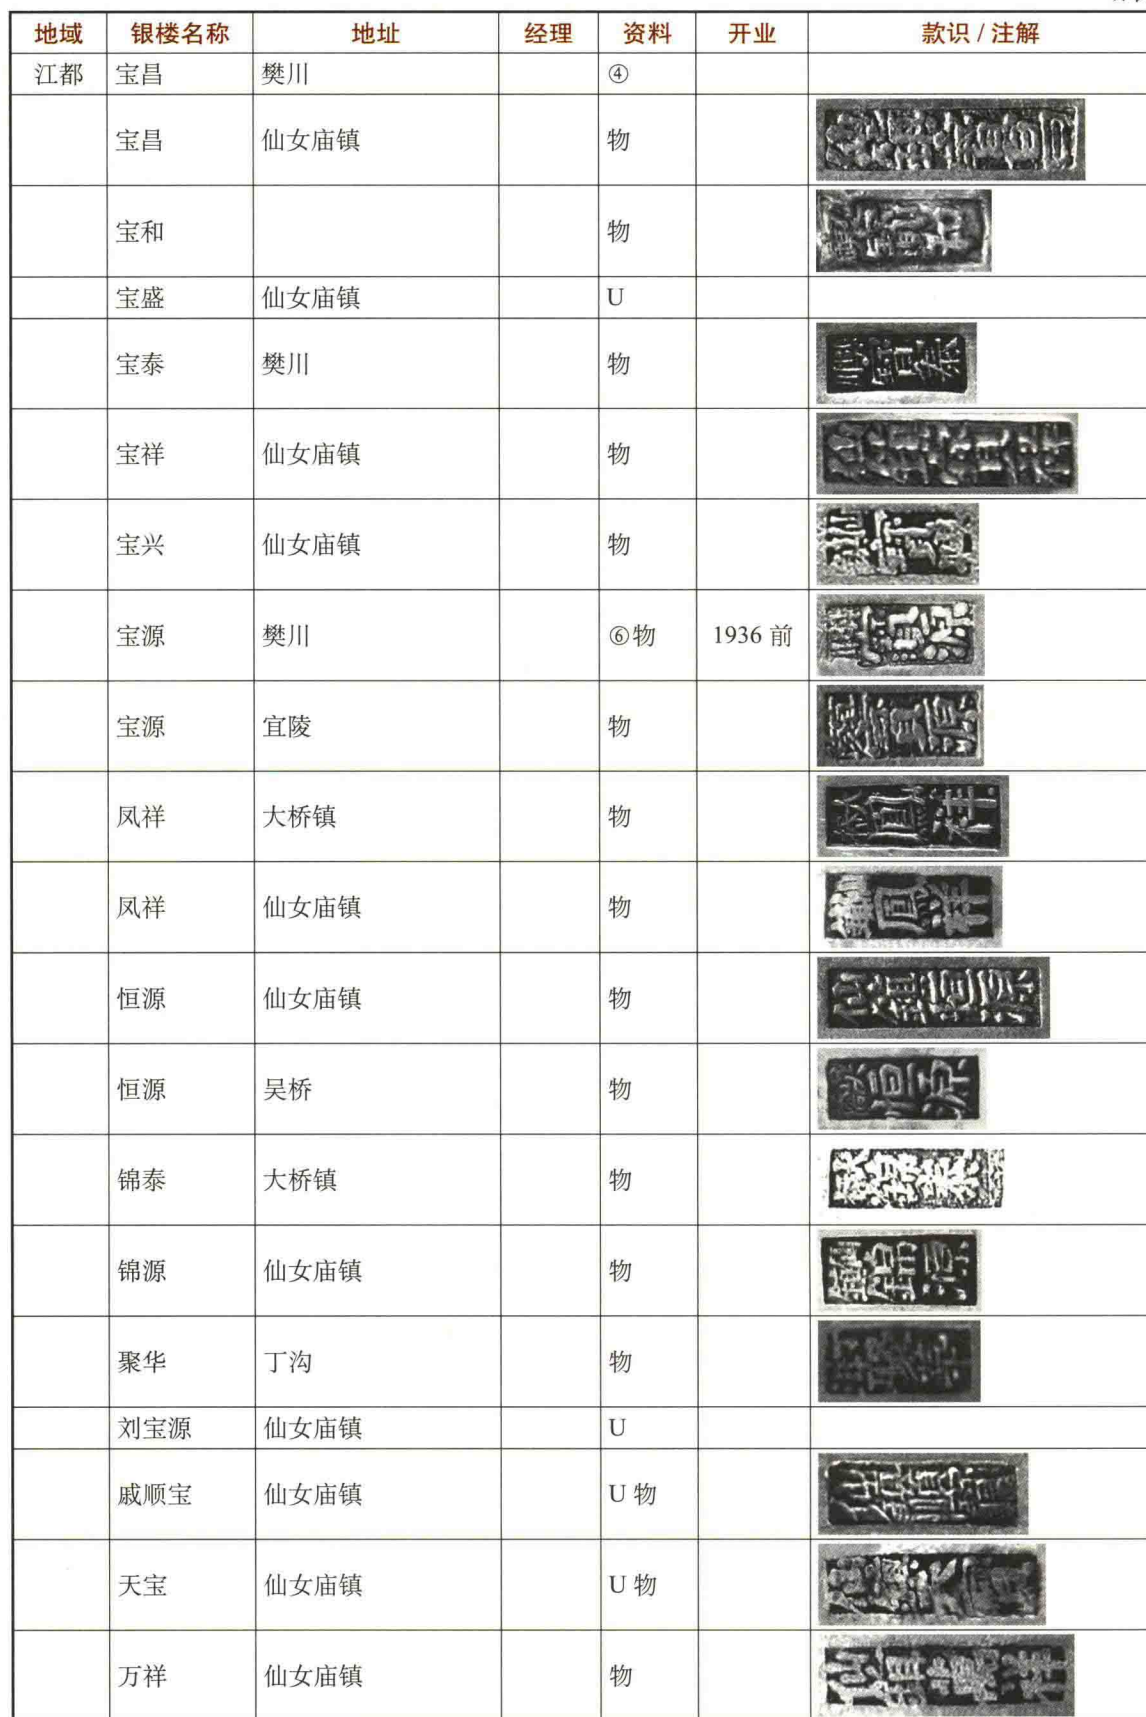 地域 银楼名称 地址 经理 资料 开业 款识 / 注解
江都 宝昌 樊川 ④
宝昌 仙女庙镇 物
宝和 物
宝盛 仙女庙镇 U
宝泰 樊川 物
宝祥 仙女庙镇 物
宝兴 仙女庙镇 物
宝源 樊川 ⑥物 1936 前
宝源 宜陵 物
凤祥 大桥镇 物
凤祥 仙女庙镇 物
恒源 仙女庙镇 物
恒源 吴桥 物
锦泰 大桥镇 物
锦源 仙女庙镇 物
聚华 丁沟 物
刘宝源 仙女庙镇 U
戚顺宝 仙女庙镇 U 物
天宝 仙女庙镇 U 物
万祥 仙女庙镇 物